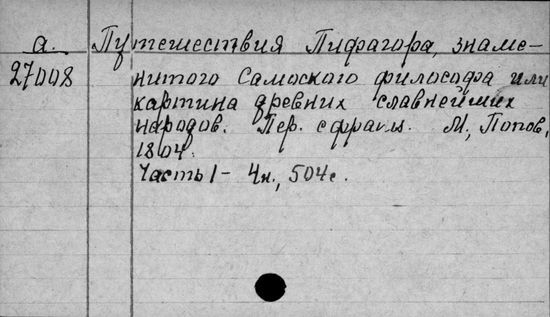 а. Путешествия Пифагора, знаме-
27008 нитого Самоского философа или
картина древних славнейших
народов. Пер. с франц. М., Попов,
1804.
Часть 1 - 4н., 504 с.